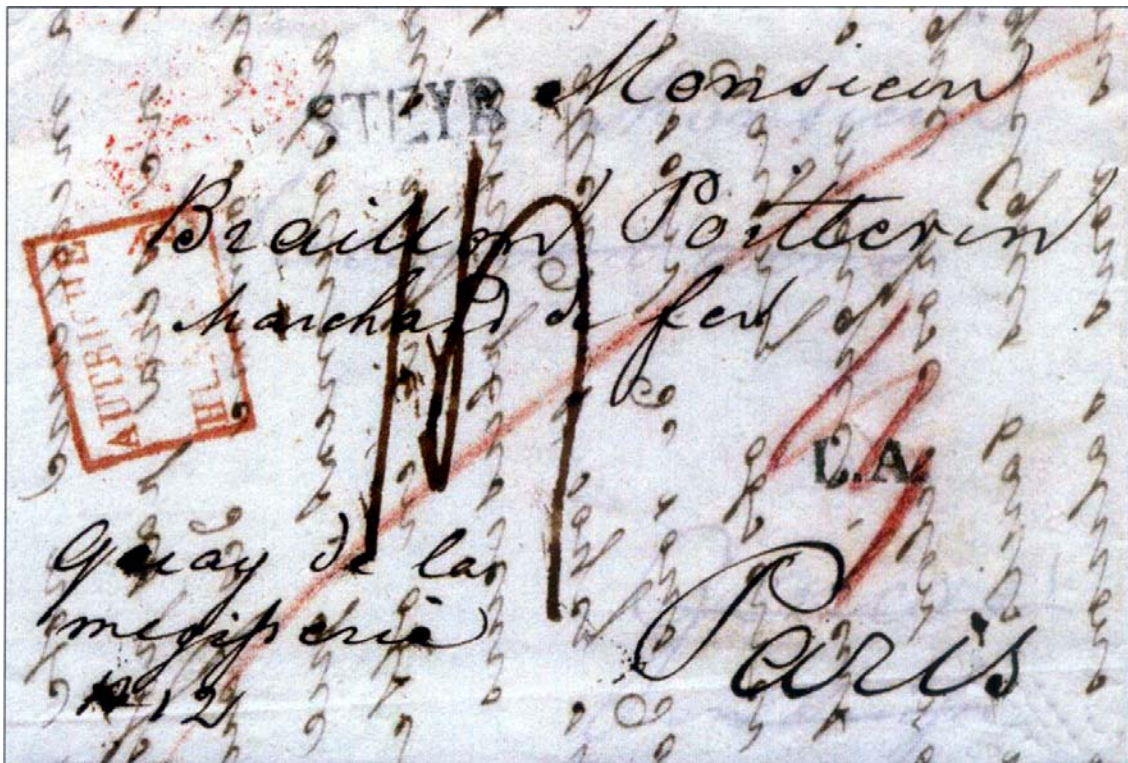 STEYR
Monsieur
Braillon Poitterin
Marchand de fer
AUTRICHE
L.A.
Quay de la
megisserie
N 12
Paris